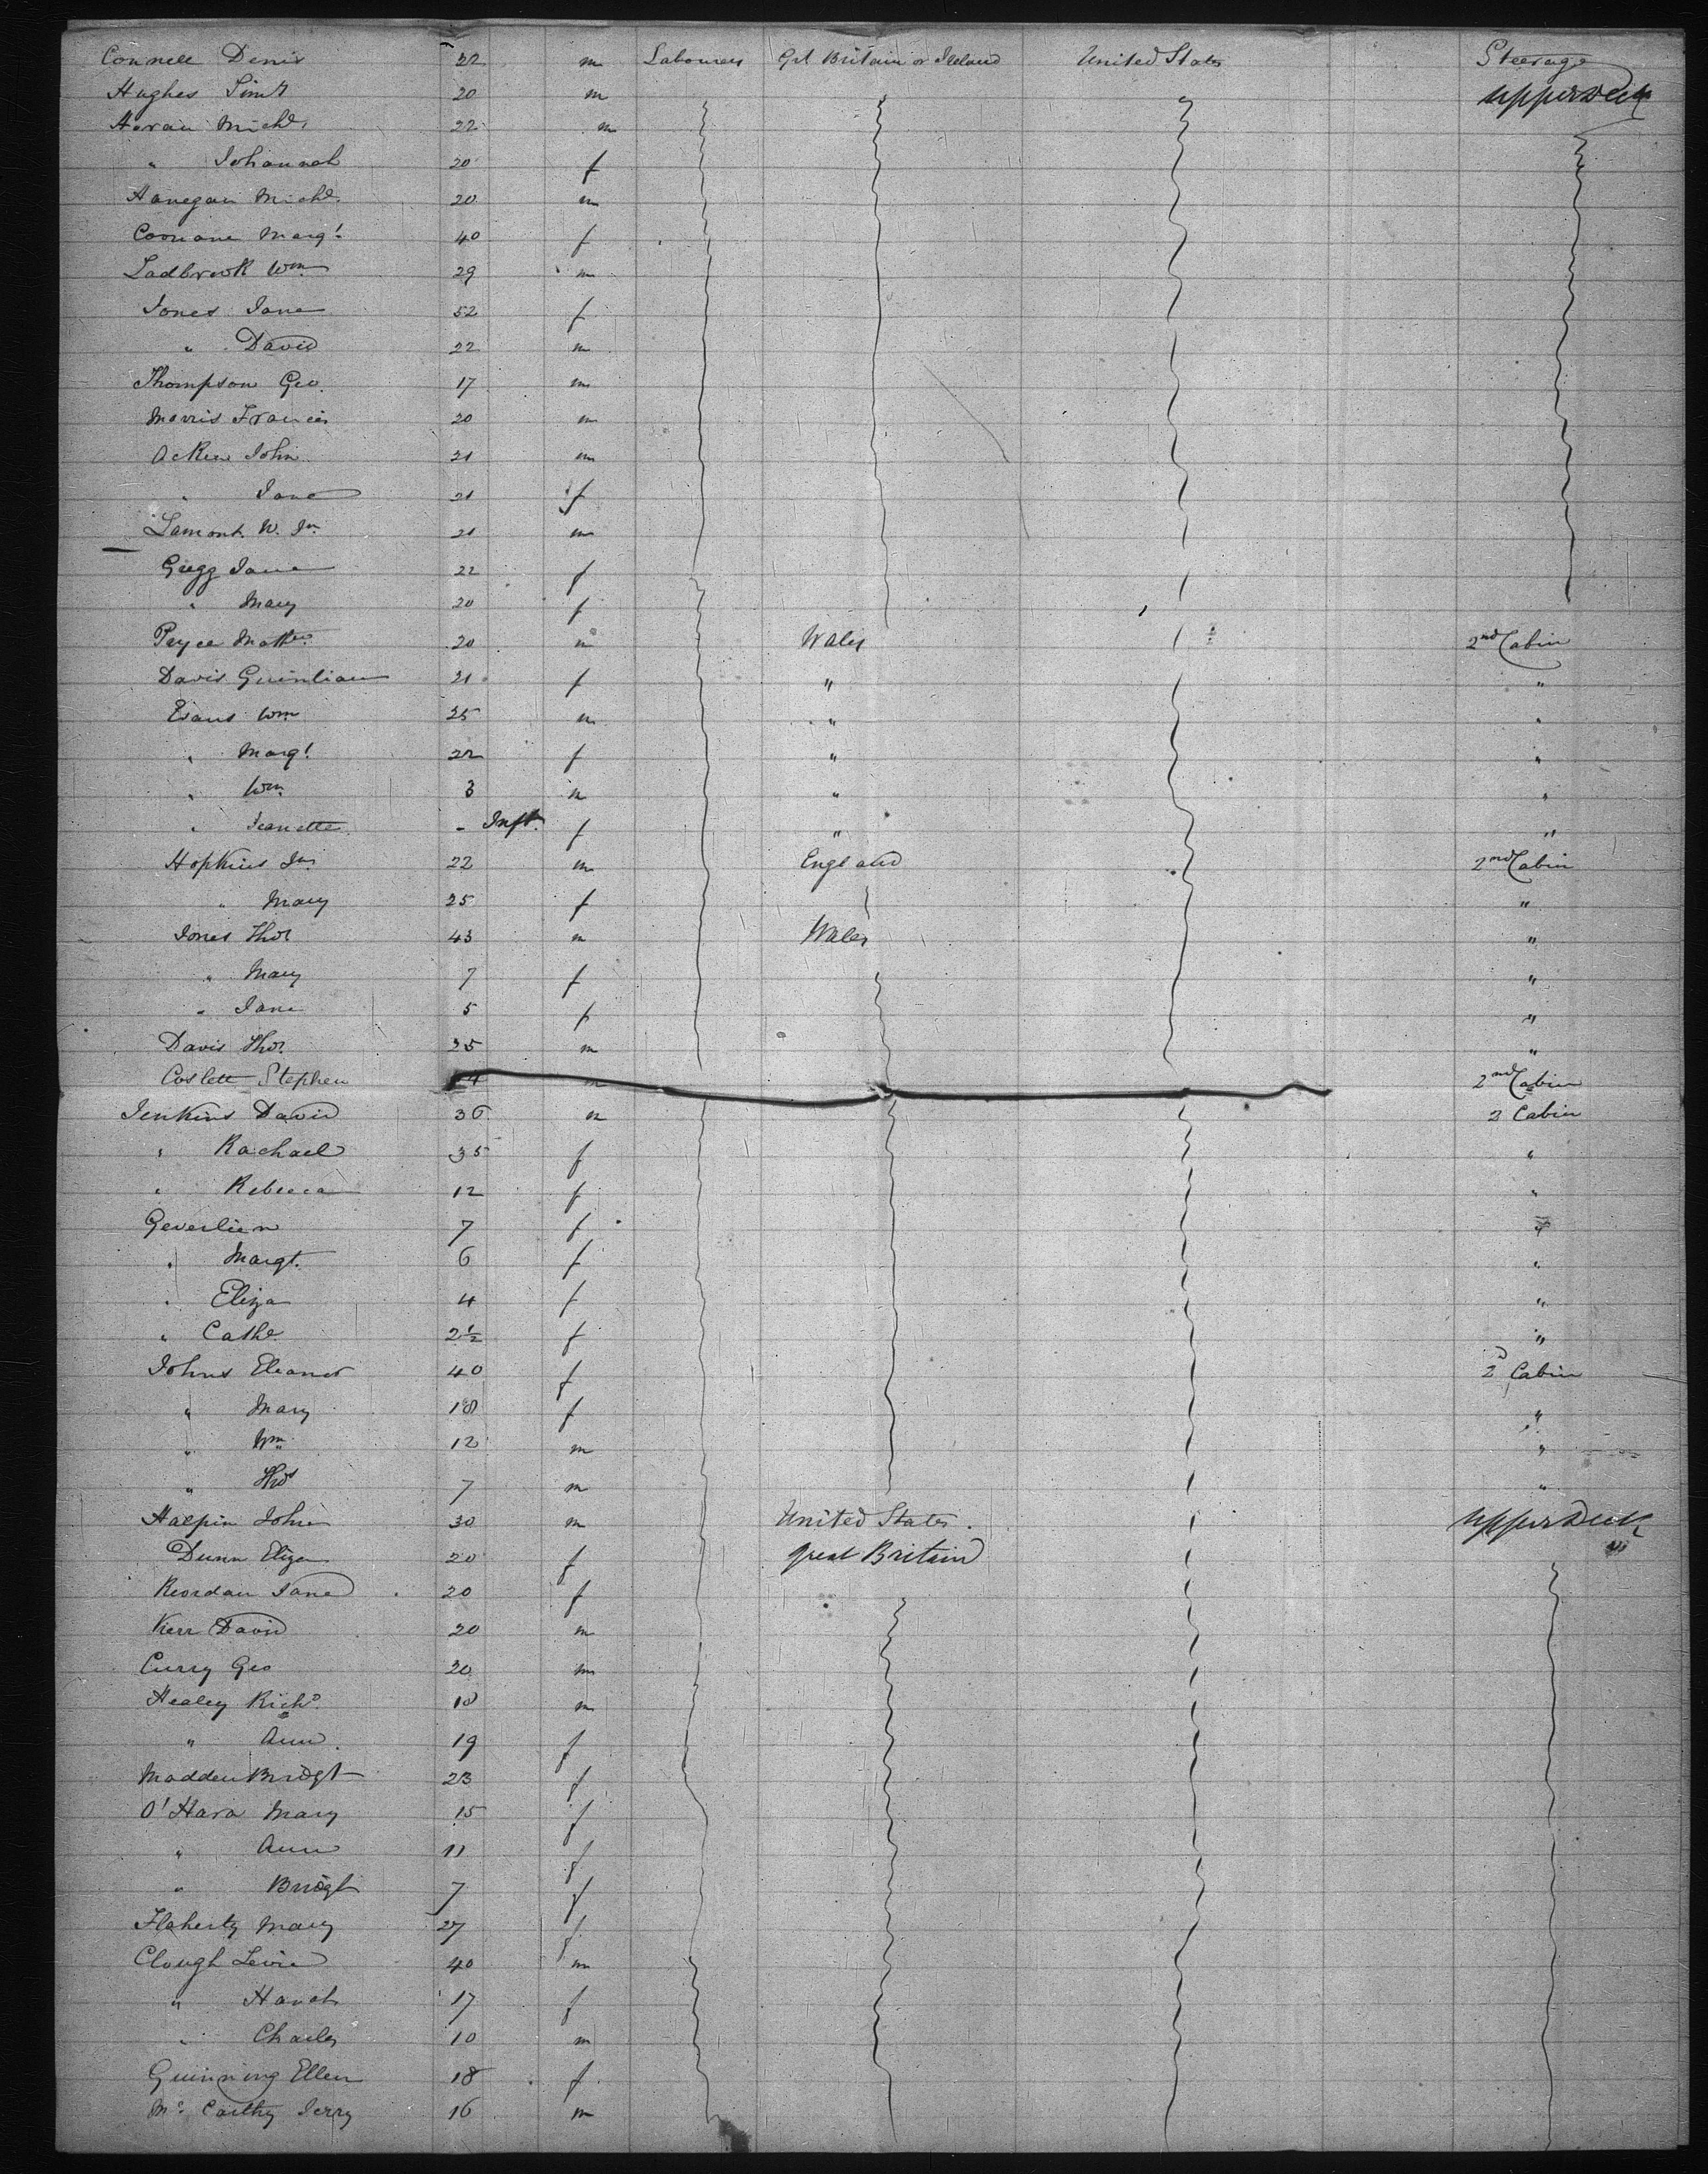 Connell Denis 22 m Labourers Gt Britain or Ireland United States Steerage
Hughes 20 m upper deck
Horan Michl 22 m
" Johannah 20 f
Hanegan Michl 20 m
Coonane Margt 40 f
Ladbrook Wm 29 m
Jones Jane 52 f
" David 22 m
Thompson Geo. 17 m
Morris Francis 20 m
Acken John 21 m
" Jane 21 f
Lamont W. Jn 21 m
Gregg Jane 22 f
" Mary 20 f
Pryce Matthw 20 m Wales 2nd Cabin
Davis Guinlian 21 f " "
Evans Wm 25 m " "
" Margt 22 f " "
" Wm 3 m " "
" Jeanette - Inft. f " "
Hopkins Jn 22 m England 2nd Cabin
" Mary 25 f "
Jones Thos 43 m Wales "
" Mary 7 f "
" Jane 5 f "
Davis Thos 25 m "
Coslett Stephen m 2nd Cabin
Jenkins David 36 m 2 Cabin
" Rachael 35 f "
" Rebecca 12 f "
Geverlien 7 f "
" Margt. 6 f "
" Eliza 4 f "
" Cathe 2½ f "
Johns Eleanor 40 f 2d Cabin
" Mary 18 f "
" Wm 12 m "
" Thos 7 m "
Halpin John 30 m United States. upper Deck
Dunn Eliza 20 f great Britain "
Reordan Jane 20 f
Kerr David 20 m
Curry Geo 20 m
Healey Richd 18 m
" Ann. 19 f
Madden Bridgt 23 f
O'Hara Mary 15 f
" Ann 11 f
" Bridgt 7 f
Flaherty Mary 27 f
Clough Levi 40 m
" Hanah 17 f
" Charles 10 m
Guinning Ellen 18 f
Mc Carthy Jerry 16 m